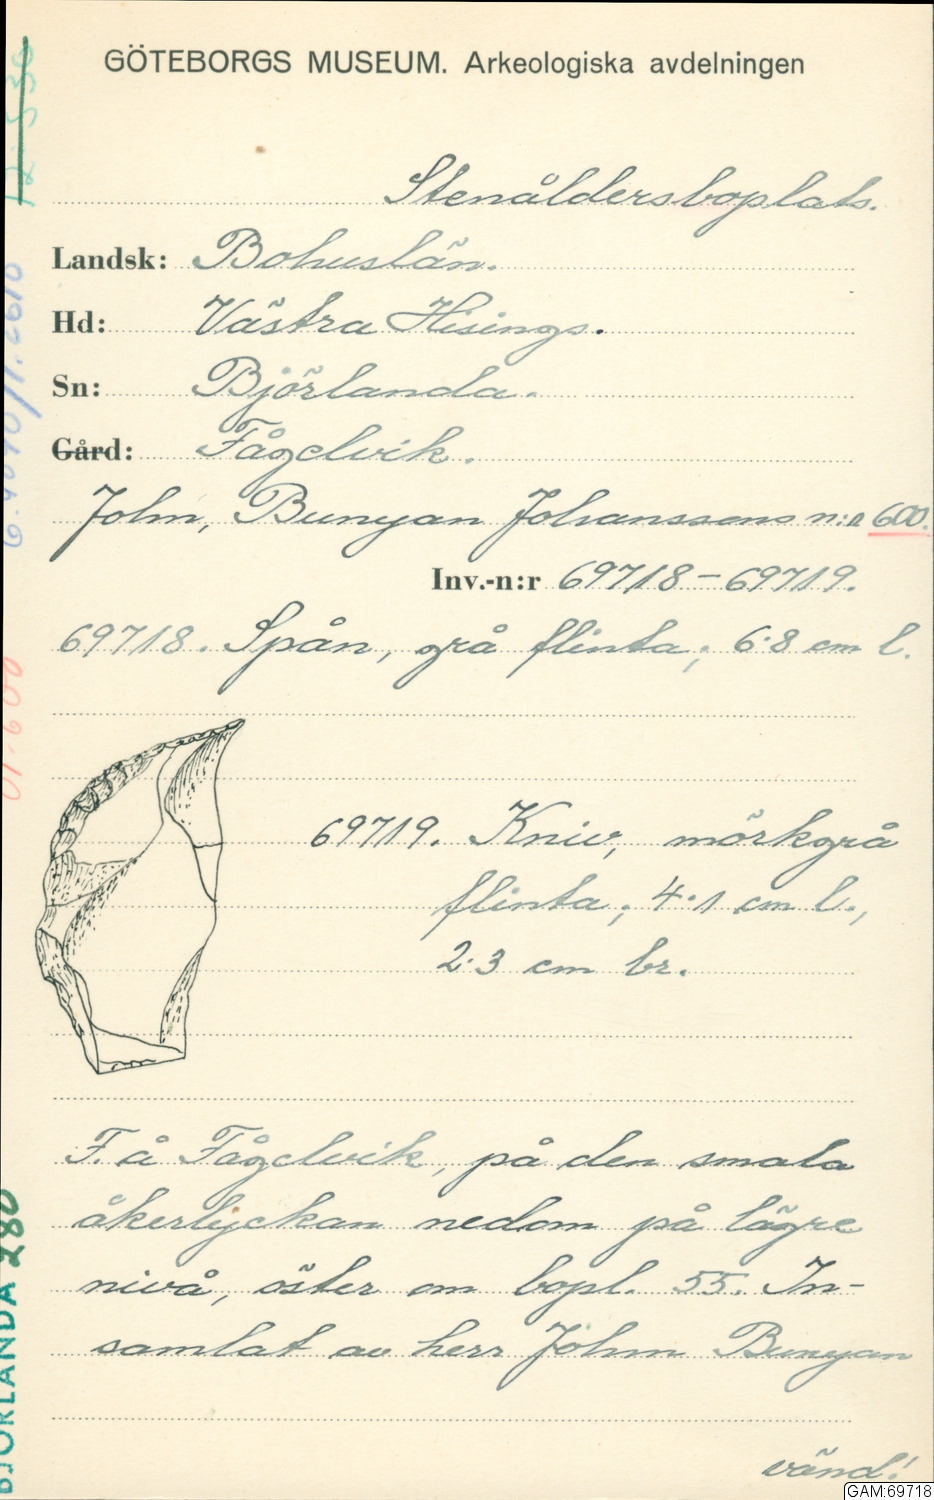 GÖTEBORGS MUSEUM. Arkeologiska avdelningen
Stenåldersboplats.
Landsk: Bohuslän.
Hd: Västra Hisings.
Sn: Björlanda.
Gård: Fågelvik.
John, Bunyan Johanssons n:r 600.
Inv.-n:r 69718-69719.
69718. Spån, grå flinta; 6.8 cm l.
69719. Kniv, mörkgrå
flinta; 4.1 cm l.,
2.3 cm br.
F. å Fågelvik, på den smala
åkerlyckan nedom på lägre
nivå, öster om bopl. 55. In-
samlat av herr John Bunyan
vänd!
GAM:69718
BJÖRLANDA 280
01.600